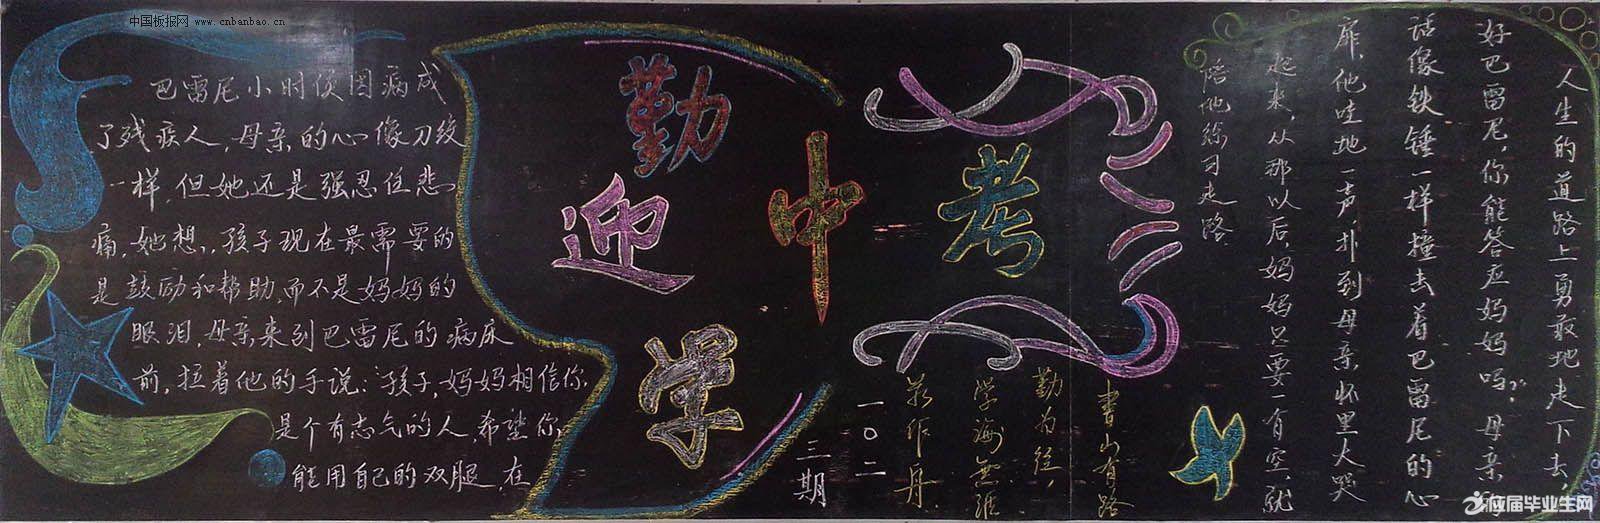 中国板报网 www.cnbanbao.cn
巴雷尼小时候因病成
了残疾人,母亲的心像刀绞
一样,但她还是强忍住悲
痛,她想,孩子现在最需要的
是鼓励和帮助,而不是妈妈的
眼泪,母亲来到巴雷尼的病床
前,拉着他的手说:"孩子,妈妈相信你
是个有志气的人,希望你
能用自己的双腿,在
勤
学
迎
中
考
人生的道路上勇敢地走下去,
好巴雷尼,你能答应妈妈吗?"母亲的
话像铁锤一样撞击着巴雷尼的心
扉,他哇地一声,扑到母亲怀里大哭
起来,从那以后,妈妈只要一有空,就
陪他练习走路
书山有路
勤为径,
学海无涯
苦作舟
一〇二
三期
应届毕业生网